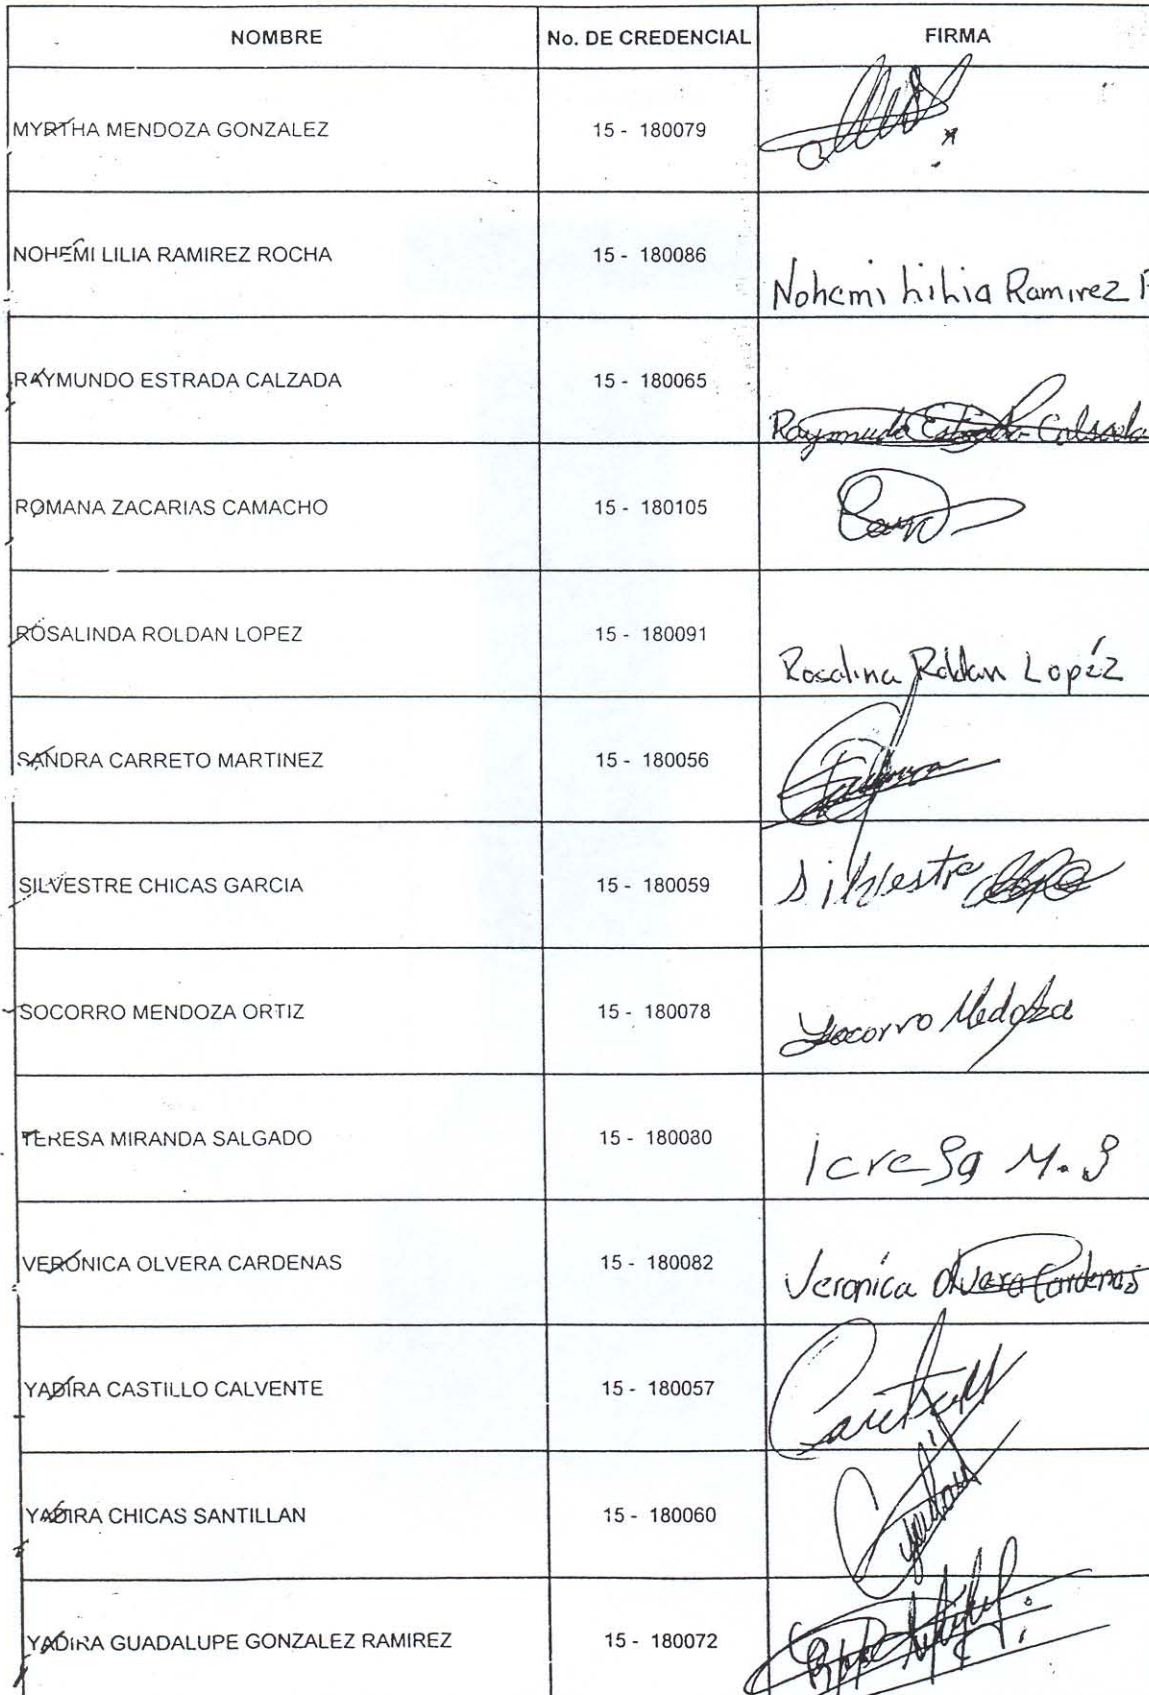 NOMBRE No. DE CREDENCIAL FIRMA
MYRTHA MENDOZA GONZALEZ 15 - 180079
NOHEMI LILIA RAMIREZ ROCHA 15 - 180086 Nohemi Lilia Ramirez R
RAYMUNDO ESTRADA CALZADA 15 - 180065 Raymudo Estrada Calsada
ROMANA ZACARIAS CAMACHO 15 - 180105
ROSALINDA ROLDAN LOPEZ 15 - 180091 Rosalina Roldan Lopéz
SANDRA CARRETO MARTINEZ 15 - 180056
SILVESTRE CHICAS GARCIA 15 - 180059 Silvestre
SOCORRO MENDOZA ORTIZ 15 - 180078 Socorro Medoza
TERESA MIRANDA SALGADO 15 - 180080 Teresa M. S
VERONICA OLVERA CARDENAS 15 - 180082 Veronica Olvera Cardenas
YADIRA CASTILLO CALVENTE 15 - 180057
YADIRA CHICAS SANTILLAN 15 - 180060
YADIRA GUADALUPE GONZALEZ RAMIREZ 15 - 180072